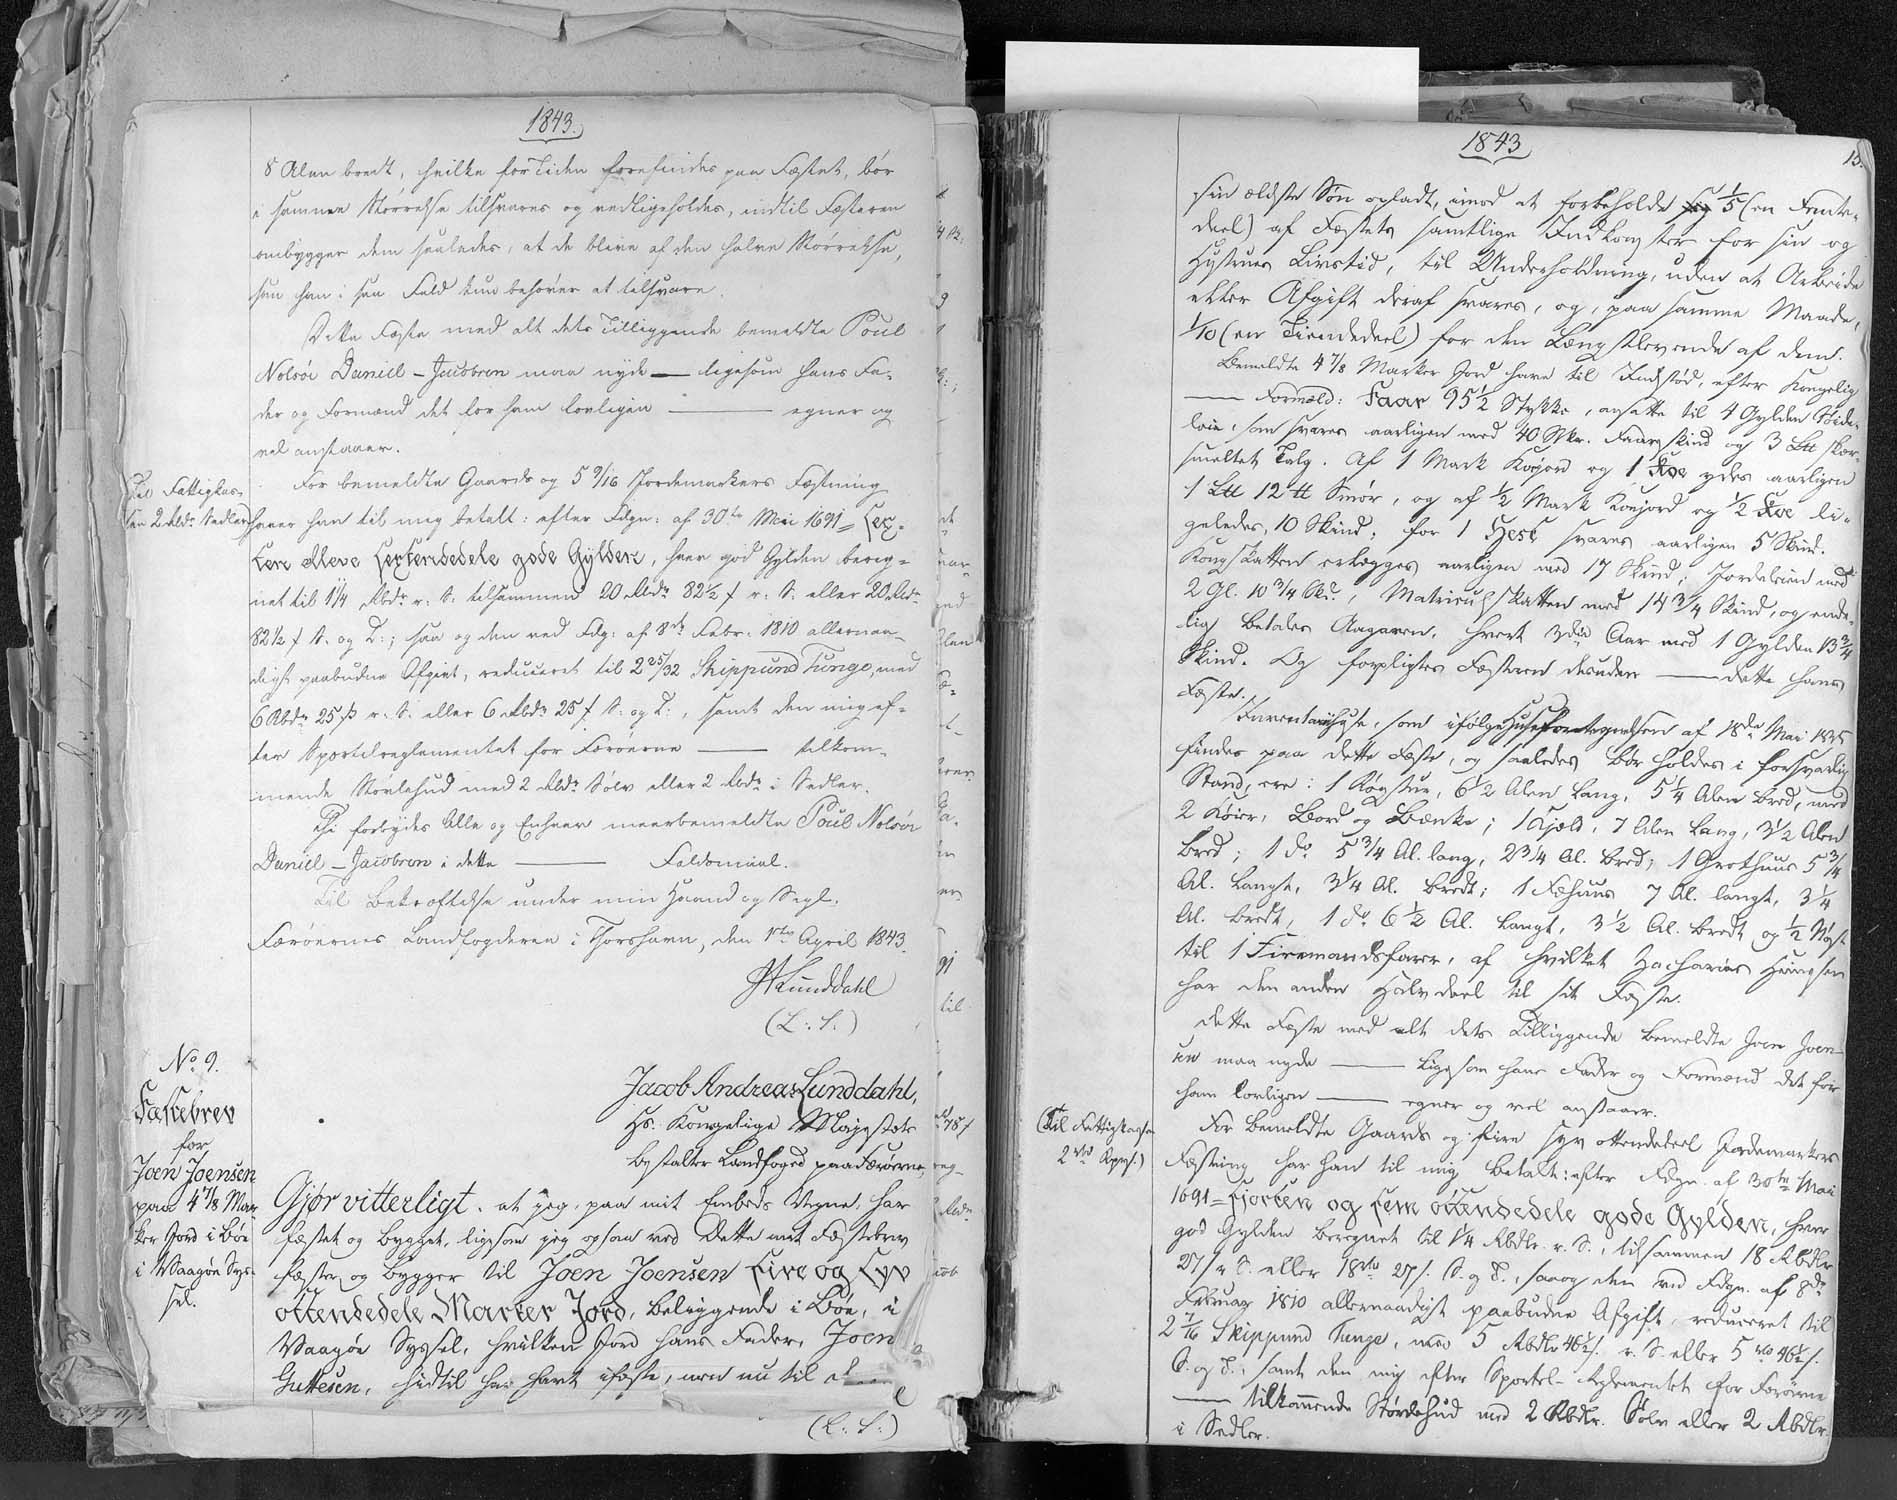 1843.
8 Alen bredt, hvilke for Tiden forefindes paa Fæstet, bør
i samme Størrelse tilsvares og vedligeholdes, indtil Fæsteren
ombygger dem saaledes, at de blive af den halve Størrelse,
som han i saa Fald kun behøver at tilsvare.
Dette Fæste med alt dets Tilliggende bemeldte Poul
Nolsøe Daniel-Jacobsen maa nyde — ligesom hans Fa-
der og Formænd det for ham lovligen — egner og
vel anstaaer.
Til Fattigkas-
sen 2 Rbdr. Sedler
For bemeldte Gaards og 5 9/16 Jordemarkers Fæstning
haver han til mig betalt: efter Fdgn: af 30te Mai 1691 = Sex-
ten elleve Sextendedele gode Gylden, hver god Gylden bereg-
net til 1 1/4 Rbdr r: S: tilsammen 20 Rbdr 82 1/2 ß r: S: eller 20 Rbdr
82 1/2 ß S. og T.; saa og den ved Fdg: af 8de Febr: 1810 allernaa-
digst paabudne Afgivt, reduceret til 2 25/32 Skippund Tunge, med
6 Rbdr 25 ß r: S: eller 6 Rbdr 25 ß S. og T:, samt den mig ef-
ter Sportelreglementet for Færøerne — tilkom-
mende Størlehud med 2 Rbdr Sølv eller 2 Rbdr i Sedler.
Thi forbydes Alle og Enhver meerbemeldte Poul Nolsøe
Daniel-Jacobsen i dette — Faldsmaal.
Til Bekræftelse under min Haand og Segl.
Færøernes Landfogderie i Thorshavn, den 1ste April 1843.
JALunddahl
(L: S:)
No 9.
Fæstebrev
for
Joen Joensen
paa 4 7/8 Mar-
ker Jord i Bøe
i Vaagøe Sys-
sel.
Jacob Andreas Lunddahl,
Hs. Kongelige Majestæts
bestalter Landfoged paa Færøerne,
Gjør vitterligt, at jeg, paa mit Embeds Vegne, har
fæstet og bygget, ligesom jeg ogsaa ved Dette mit Fæstebrev
fæster og bygger til Joen Joensen Fire og Syv
ottendedele Marker Jord, beliggende i Bøe, i
Vaagøe Syssel, hvilken Jord hans Fader, Joen
Guttesen, hidtil har havt i fæste, men nu til
(L: S:)
1843
13.
sin ældste Søn opladt, imod at forbeholde sig 1/5 (en Femte-
deel) af Fæstets samtlige Indkomster for sin og
Hustrues Livstid, til Underholdning, uden at Arbeide
eller Afgift deraf svares, og, paa samme Maade,
1/10 (en Tiendedeel) for den Længstlevende af dem.
Bemeldte 4 7/8 Marker Jord have til Indstød, efter Kongelig
— Formeld: Faar 95 1/2 Stykke, ansatte til 4 Gylden Skide-
leie, som svares aarligen med 40 Stkr. Faareskind og 3 L℔ skær-
smeltet Talg. Af 1 Mark Kvejord og 1 Koe ydes aarligen
1 L℔ 12 ℔ Smør, og af 1/2 Mark Koejord og 1/2 Koe li-
geledes, 10 Skind; for 1 Hest svares aarligen 5 Skind.
Kongskatten erlægges aarligen med 17 Skind, Jordeleien med
2 Gl. 10 3/4 Skd., Matriculskatten med 14 3/4 Skind, og ende-
lig betales Aagaven, hvert 3die Aar med 1 Gylden 13 3/4
Skind. Og forpligtes Fæsteren desuden — dette hans
Fæste.
Inventariihuse, som ifølge Huusfortegnelsen af 18de Mai 1835
findes paa dette Fæste, og saaledes bør holdes i forsvarlig
Stand, ere: 1 Røgstue, 6 1/2 Alen lang, 5 1/4 Alen bred, med
2 Køier, Bord og Bænke; 1 Hjeld, 7 Alen lang, 3 1/2 Alen
bred; 1 do 5 3/4 Al. lang, 2 3/4 Al. bred; 1 Grothuus 5 3/4
Al. langt, 3 1/4 Al. bredt; 1 Fæhuus 7 Al. langt, 3 1/4
Al. bredt, 1 do 6 1/2 Al. langt, 3 1/2 Al. bredt og 1/2 Nøst
til 1 Firemandsfarer, af hvilket Zacharias
har den anden Halvdeel til sit Fæste.
Dette Fæste med alt dets Tilliggende bemeldte Joen Joen-
sen maa nyde — ligesom hans Fader og Formænd det for
ham lovligen — egner og vel anstaaer.
(Til Fattigkassen
2 rbd Rpns.)
For bemeldte Gaards og fire syv ottendedeel Jordemarkers
Fæstning har han til mig betalt: efter Fdgn. af 30te Mai
1691 = Fjorten og fem ottendedele gode Gylden, hver
god Gylden beregnet til 1 1/4 Rbdlr. r. S., tilsammen 18 Rbdlr.
27 ß r. S. eller 18 rbd 27 ß. S. og T., saaog den ved Fdgn. af 8de
Februar 1810 allernaadigst paabudne Afgift, reduceret til
2 7/16 Skippund Tunge, med 5 Rbdlr. 46 1/2 ß. r. S. eller 5 rbd 46 1/2 ß.
S. og T., samt den mig efter Sportel-Reglementet for Færøerne
— tilkommende Størlehud med 2 Rbdlr. Sølv eller 2 Rbdlr.
i Sedler.